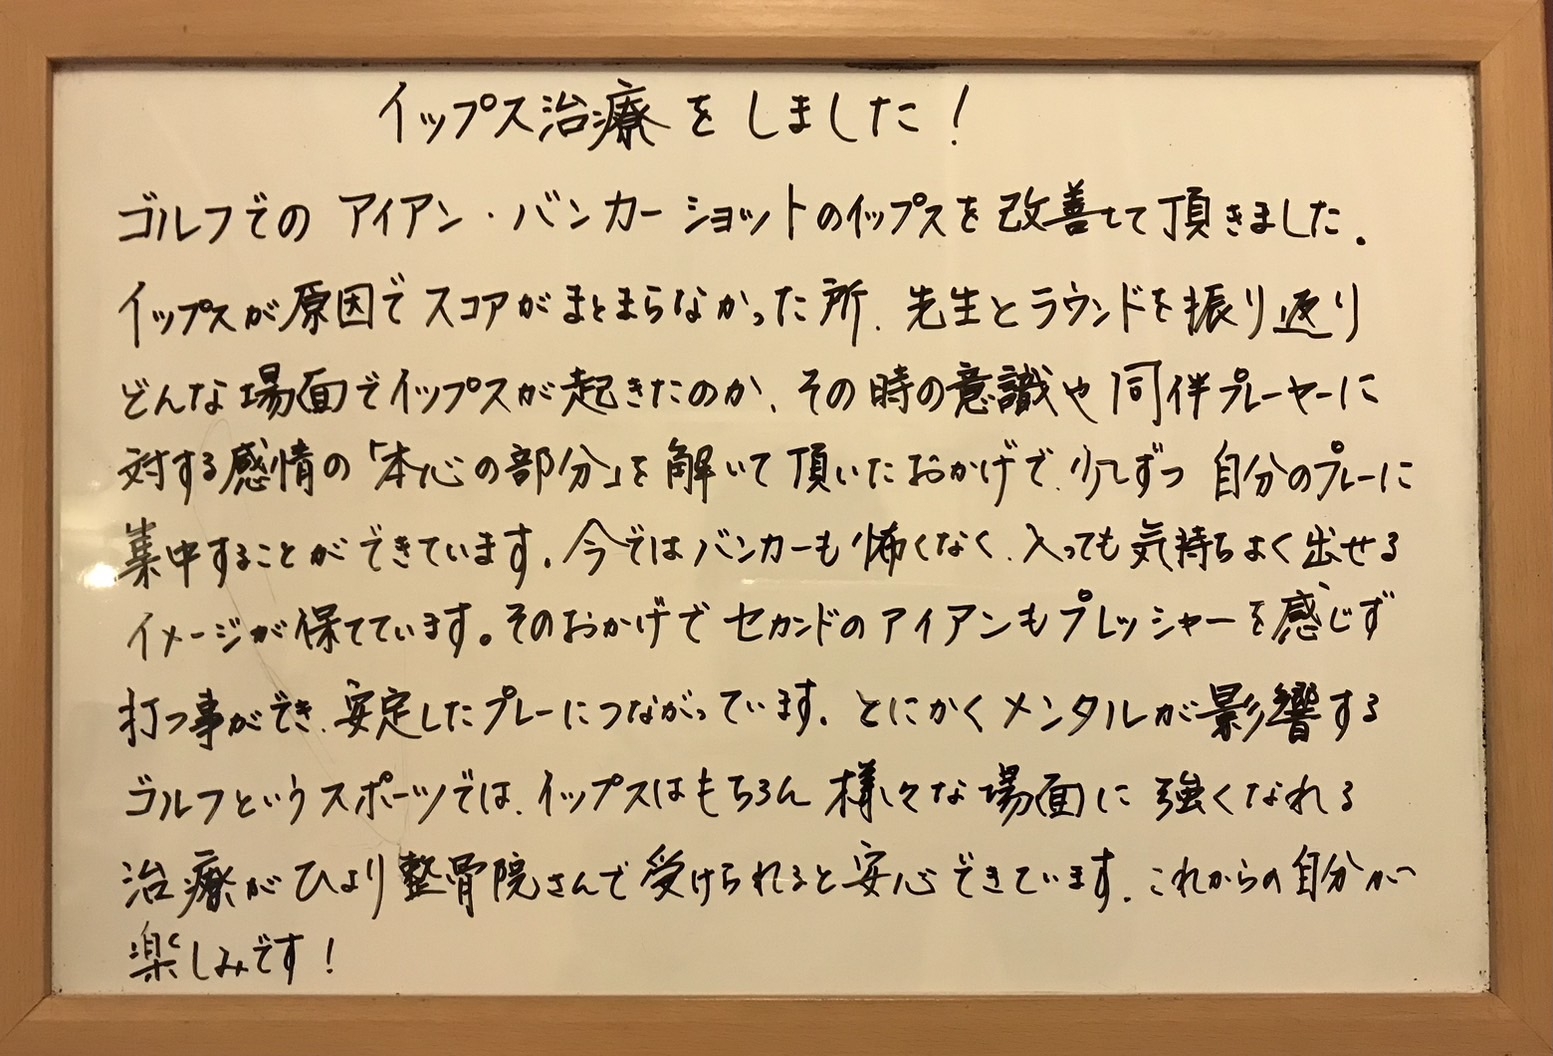 イップス治療をしました！
ゴルフでのアイアン・バンカーショットのイップスを改善して頂きました。
イップスが原因でスコアがまとまらなかった所、先生とラウンドを振り返り
どんな場面でイップスが起きたのか、その時の意識や同伴プレーヤーに
対する感情の「本心の部分」を解いて頂いたおかげで、少しずつ自分のプレーに
集中することができています。今ではバンカーも怖くなく、入っても気持ちよく出せる
イメージが保てています。そのおかげでセカンドのアイアンもプレッシャーを感じず
打つ事ができ、安定したプレーにつながっています。とにかくメンタルが影響する
ゴルフというスポーツでは、イップスはもちろん様々な場面に強くなれる
治療がひより整骨院さんで受けられると安心できています。これからの自分が
楽しみです！